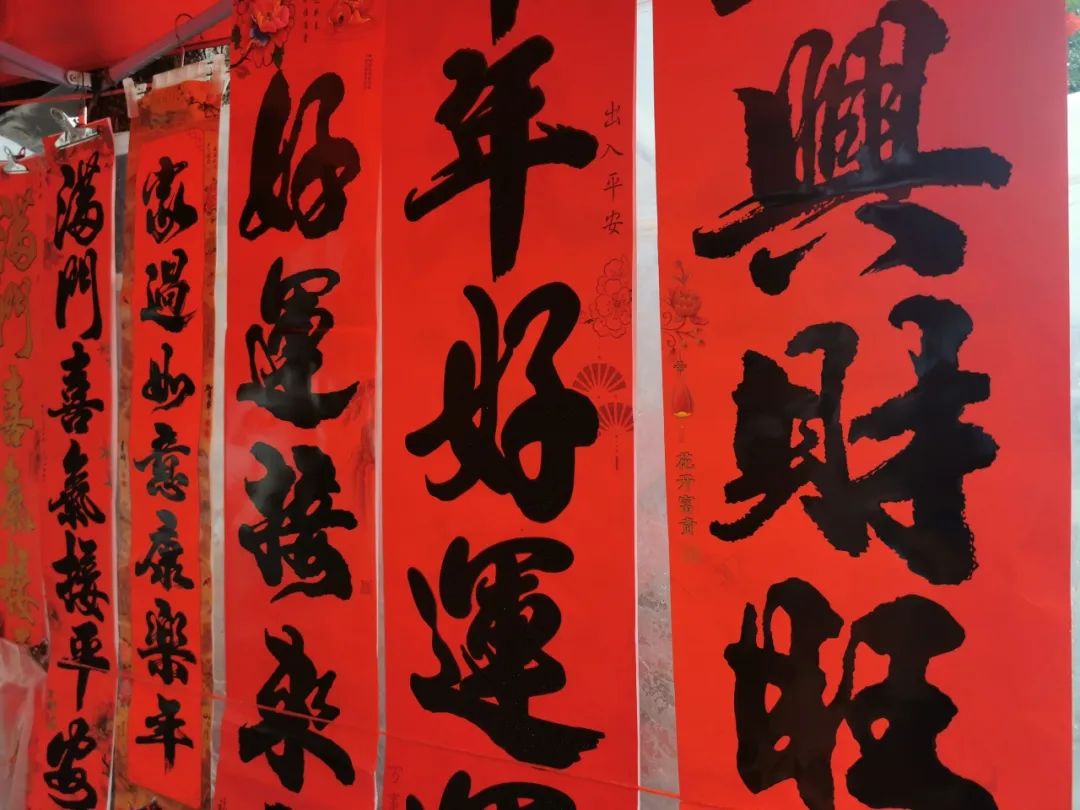 興財旺
花开富贵
出入平安
年好運
好運接來
家過如意康樂年
滿門喜氣接平安
滿門喜氣接